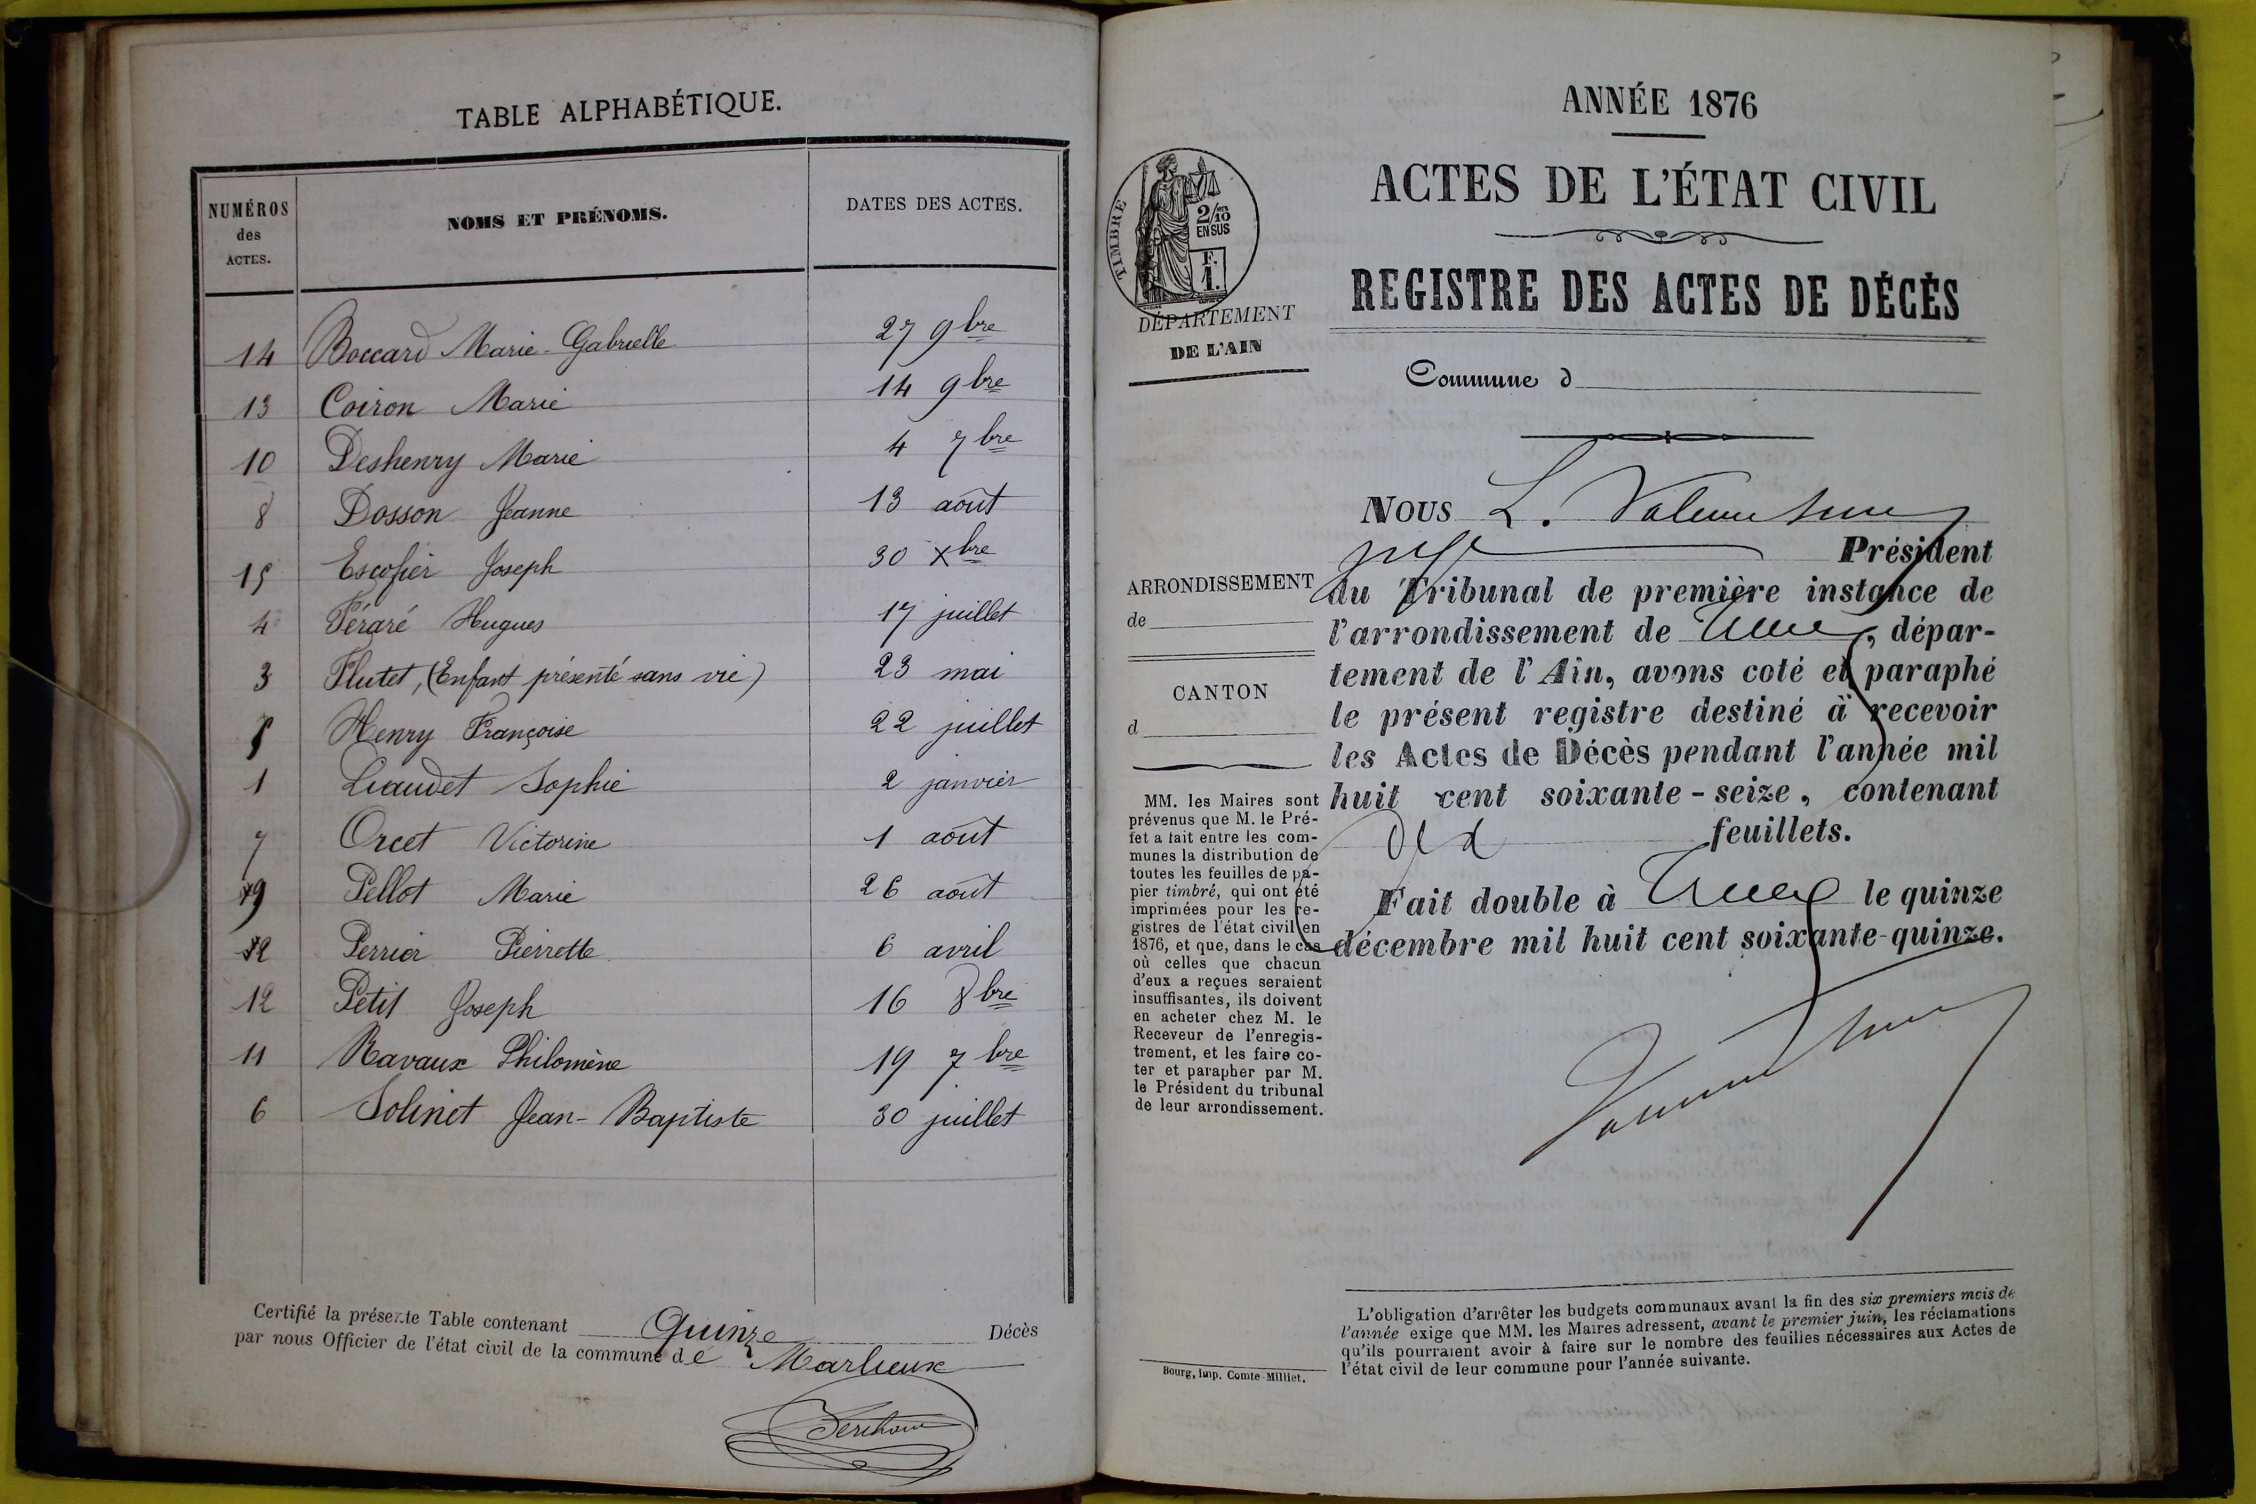 TABLE ALPHABÉTIQUE.
NUMÉROS des ACTES.
NOMS ET PRÉNOMS.
DATES DES ACTES.
14 Boccard Marie-Gabrielle 27 9bre
13 Coiron Marie 14 9bre
10 Deshenry Marie 4 7bre
8 Dosson Jeanne 13 août
15 Escofier Joseph 30 Xbre
4 Féraré Hugues 17 juillet
3 Flutet, (Enfant présenté sans vie) 23 mai
5 Henry Françoise 22 juillet
1 Liaudet Sophie 2 janvier
7 Orcet Victorine 1 août
9 Pellot Marie 26 août
2 Perrier Pierrette 6 avril
12 Petit Joseph 16 8bre
11 Ravaux Philomène 19 7bre
6 Solinet Jean-Baptiste 30 juillet
Certifié la présente Table contenant Quinze Décès
par nous Officier de l'état civil de la commune de Marlieux
ANNÉE 1876
ACTES DE L'ÉTAT CIVIL
REGISTRE DES ACTES DE DÉCÈS
TIMBRE
2/10
EN SUS
F.
1.
DÉPARTEMENT
DE L'AIN
Commune d
ARRONDISSEMENT
de
CANTON
d
MM. les Maires sont
prévenus que M. le Pré-
fet a fait entre les com-
munes la distribution de
toutes les feuilles de pa-
pier timbré, qui ont été
imprimées pour les re-
gistres de l'état civil en
1876, et que, dans le cas
où celles que chacun
d'eux a reçues seraient
insuffisantes, ils doivent
en acheter chez M. le
Receveur de l'enregis-
trement, et les faire co-
ter et parapher par M.
le Président du tribunal
de leur arrondissement.
Nous L.
juge Président
du Tribunal de première instance de
l'arrondissement de , dépar-
tement de l'Ain, avons coté et paraphé
le présent registre destiné à recevoir
les Actes de Décès pendant l'année mil
huit cent soixante-seize, contenant
feuillets.
Fait double à le quinze
décembre mil huit cent soixante-quinze.
L'obligation d'arrêter les budgets communaux avant la fin des six premiers mois de
l'année exige que MM. les Maires adressent, avant le premier juin, les réclamations
qu'ils pourraient avoir à faire sur le nombre des feuilles nécessaires aux Actes de
l'état civil de leur commune pour l'année suivante.
Bourg, imp. Comte-Milliet.